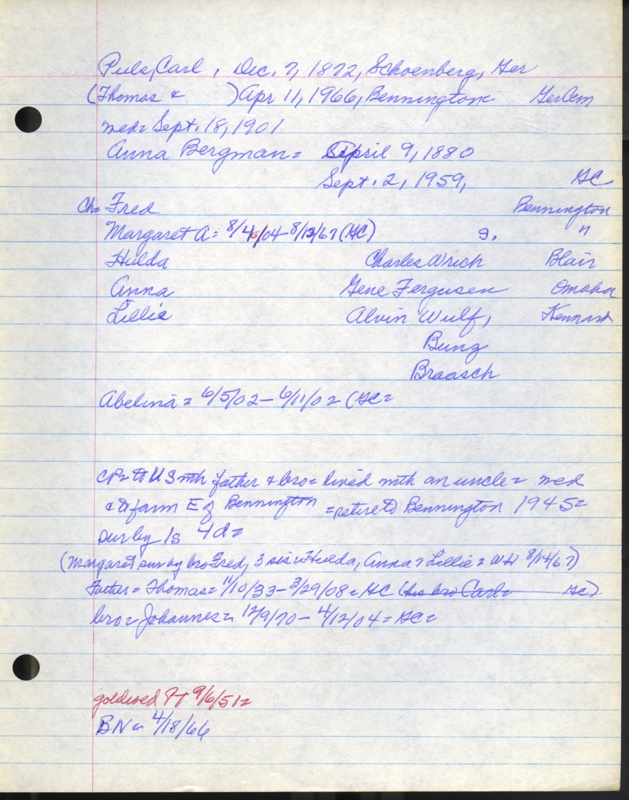 Puls, Carl, Dec. 7, 1872, Schoenberg, Ger
(Thomas &        ) Apr 11, 1966, Bennington GerCem
med= Sept. 18, 1901
Anna Bergman= April 9, 1880
Sept. 2, 1959, HC
Ch= Fred Bennington
Margaret A= 8/4/04-8/12/67 (HC) 9. "
Hilda Charles Wrich Blair
Anna Gene Ferguson Omaha
Lillie Alvin Wulf, Kennard
Bunz
Braasch
Abelina= 6/5/02-6/11/02 (HC=
to US with father & bro= lived with an uncle= med
& to farm E of Bennington =retired Bennington 1945=
sur by 1s 4d=
(Margaret sur by bro Fred, 3 sis= Hilda, Anna & Lillie= WH 8/14/67)
Father= Thomas= 11/10/33-3/29/08= HC (his bro Carl= HC)
bro= Johannes= 12/9/70-4/12/04= HC=
goldwed 9/6/51=
BN= 4/18/66